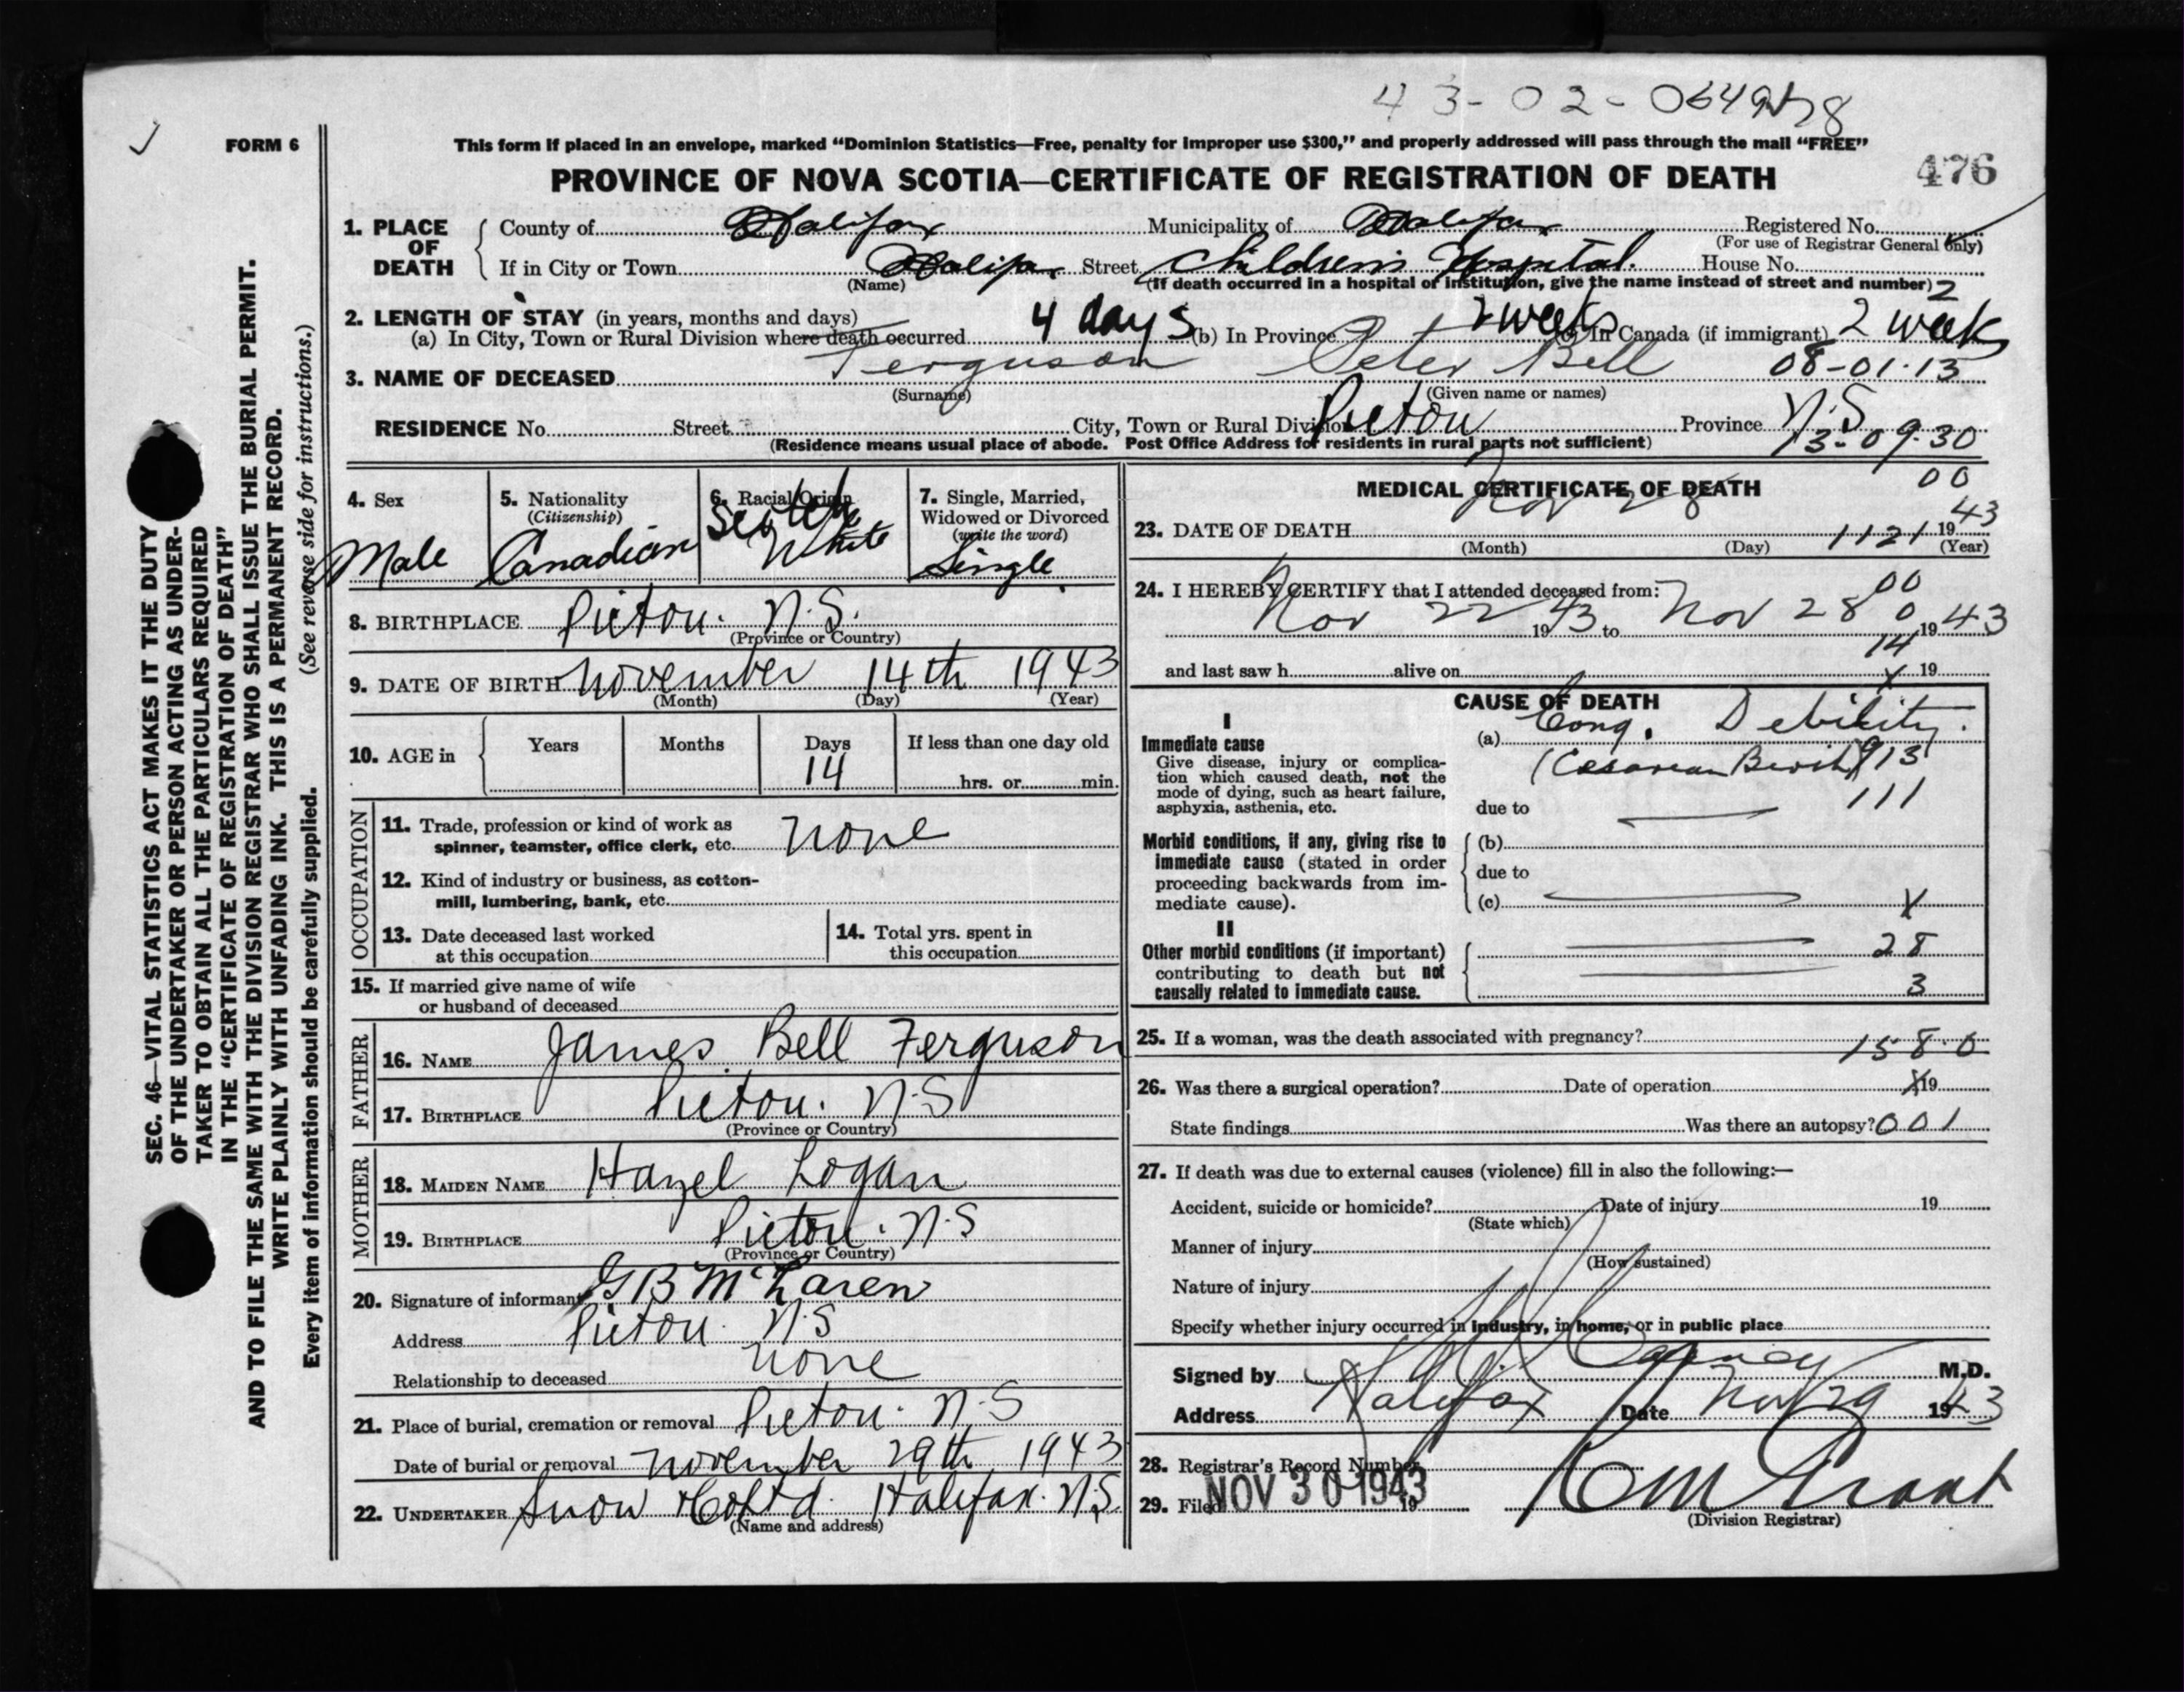 43-02-0649
FORM 6
This form if placed in an envelope, marked “Dominion Statistics—Free, penalty for improper use $300,” and properly addressed will pass through the mail “FREE”
PROVINCE OF NOVA SCOTIA—CERTIFICATE OF REGISTRATION OF DEATH
476
1. PLACE OF DEATH
County of Halifax Municipality of Halifax Registered No.
(For use of Registrar General only)
If in City or Town Halifax Street Children's Hospital. House No.
(Name) (If death occurred in a hospital or institution, give the name instead of street and number)
2. LENGTH OF STAY (in years, months and days)
(a) In City, Town or Rural Division where death occurred 4 days (b) In Province 2 weeks (c) In Canada (if immigrant) 2 week
3. NAME OF DECEASED Ferguson Peter Bell 08-01-13
(Surname) (Given name or names)
RESIDENCE No. Street City, Town or Rural Division Pictou Province N.S
(Residence means usual place of abode. Post Office Address for residents in rural parts not sufficient) 13-09-30
4. Sex
Male
5. Nationality
(Citizenship)
Canadian
6. Racial Origin
Scotch
White
7. Single, Married,
Widowed or Divorced
(write the word)
Single
8. BIRTHPLACE Pictou. N.S.
(Province or Country)
9. DATE OF BIRTH November 14th 1943
(Month) (Day) (Year)
10. AGE in
Years Months Days If less than one day old
14
hrs. or min.
OCCUPATION
11. Trade, profession or kind of work as
spinner, teamster, office clerk, etc. none
12. Kind of industry or business, as cotton-
mill, lumbering, bank, etc.
13. Date deceased last worked
at this occupation
14. Total yrs. spent in
this occupation
15. If married give name of wife
or husband of deceased
FATHER
16. NAME James Bell Ferguson
17. BIRTHPLACE Pictou. N.S
(Province or Country)
MOTHER
18. MAIDEN NAME Hazel Logan
19. BIRTHPLACE Pictou. N.S
(Province or Country)
20. Signature of informant G B McLaren
Address Pictou N.S
Relationship to deceased none
21. Place of burial, cremation or removal Pictou. N.S
Date of burial or removal November 29th 1943
22. UNDERTAKER Snow & Co Ltd. Halifax. N.S.
(Name and address)
MEDICAL CERTIFICATE OF DEATH
00
23. DATE OF DEATH Nov 28 1121 1943
(Month) (Day) (Year)
24. I HEREBY CERTIFY that I attended deceased from:
00
Nov 22 1943 to Nov 28 0 1943
14
and last saw h alive on 19
CAUSE OF DEATH
I
Immediate cause
Give disease, injury or complica-
tion which caused death, not the
mode of dying, such as heart failure,
asphyxia, asthenia, etc.
(a) Cong. Debility.
(Cesarean Birth) 913
due to 111
Morbid conditions, if any, giving rise to
immediate cause (stated in order
proceeding backwards from im-
mediate cause).
(b)
due to
(c) X
II
Other morbid conditions (if important)
contributing to death but not
causally related to immediate cause.
28
3
25. If a woman, was the death associated with pregnancy? 158.0
26. Was there a surgical operation? Date of operation X 19
State findings Was there an autopsy? 001
27. If death was due to external causes (violence) fill in also the following:—
Accident, suicide or homicide? Date of injury 19
(State which)
Manner of injury
(How sustained)
Nature of injury
Specify whether injury occurred in industry, in home, or in public place
Signed by M.D.
Address Halifax Date Nov 29 1943
28. Registrar's Record Number
29. Filed NOV 30 1943 19
(Division Registrar)
SEC. 46—VITAL STATISTICS ACT MAKES IT THE DUTY
OF THE UNDERTAKER OR PERSON ACTING AS UNDER-
TAKER TO OBTAIN ALL THE PARTICULARS REQUIRED
IN THE “CERTIFICATE OF REGISTRATION OF DEATH”
AND TO FILE THE SAME WITH THE DIVISION REGISTRAR WHO SHALL ISSUE THE BURIAL PERMIT.
WRITE PLAINLY WITH UNFADING INK. THIS IS A PERMANENT RECORD.
Every item of information should be carefully supplied. (See reverse side for instructions.)